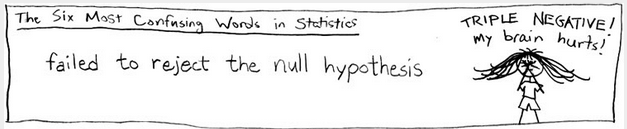 The Six Most Confusing Words in Statistics
failed to reject the null hypothesis
TRIPLE NEGATIVE!
my brain hurts!